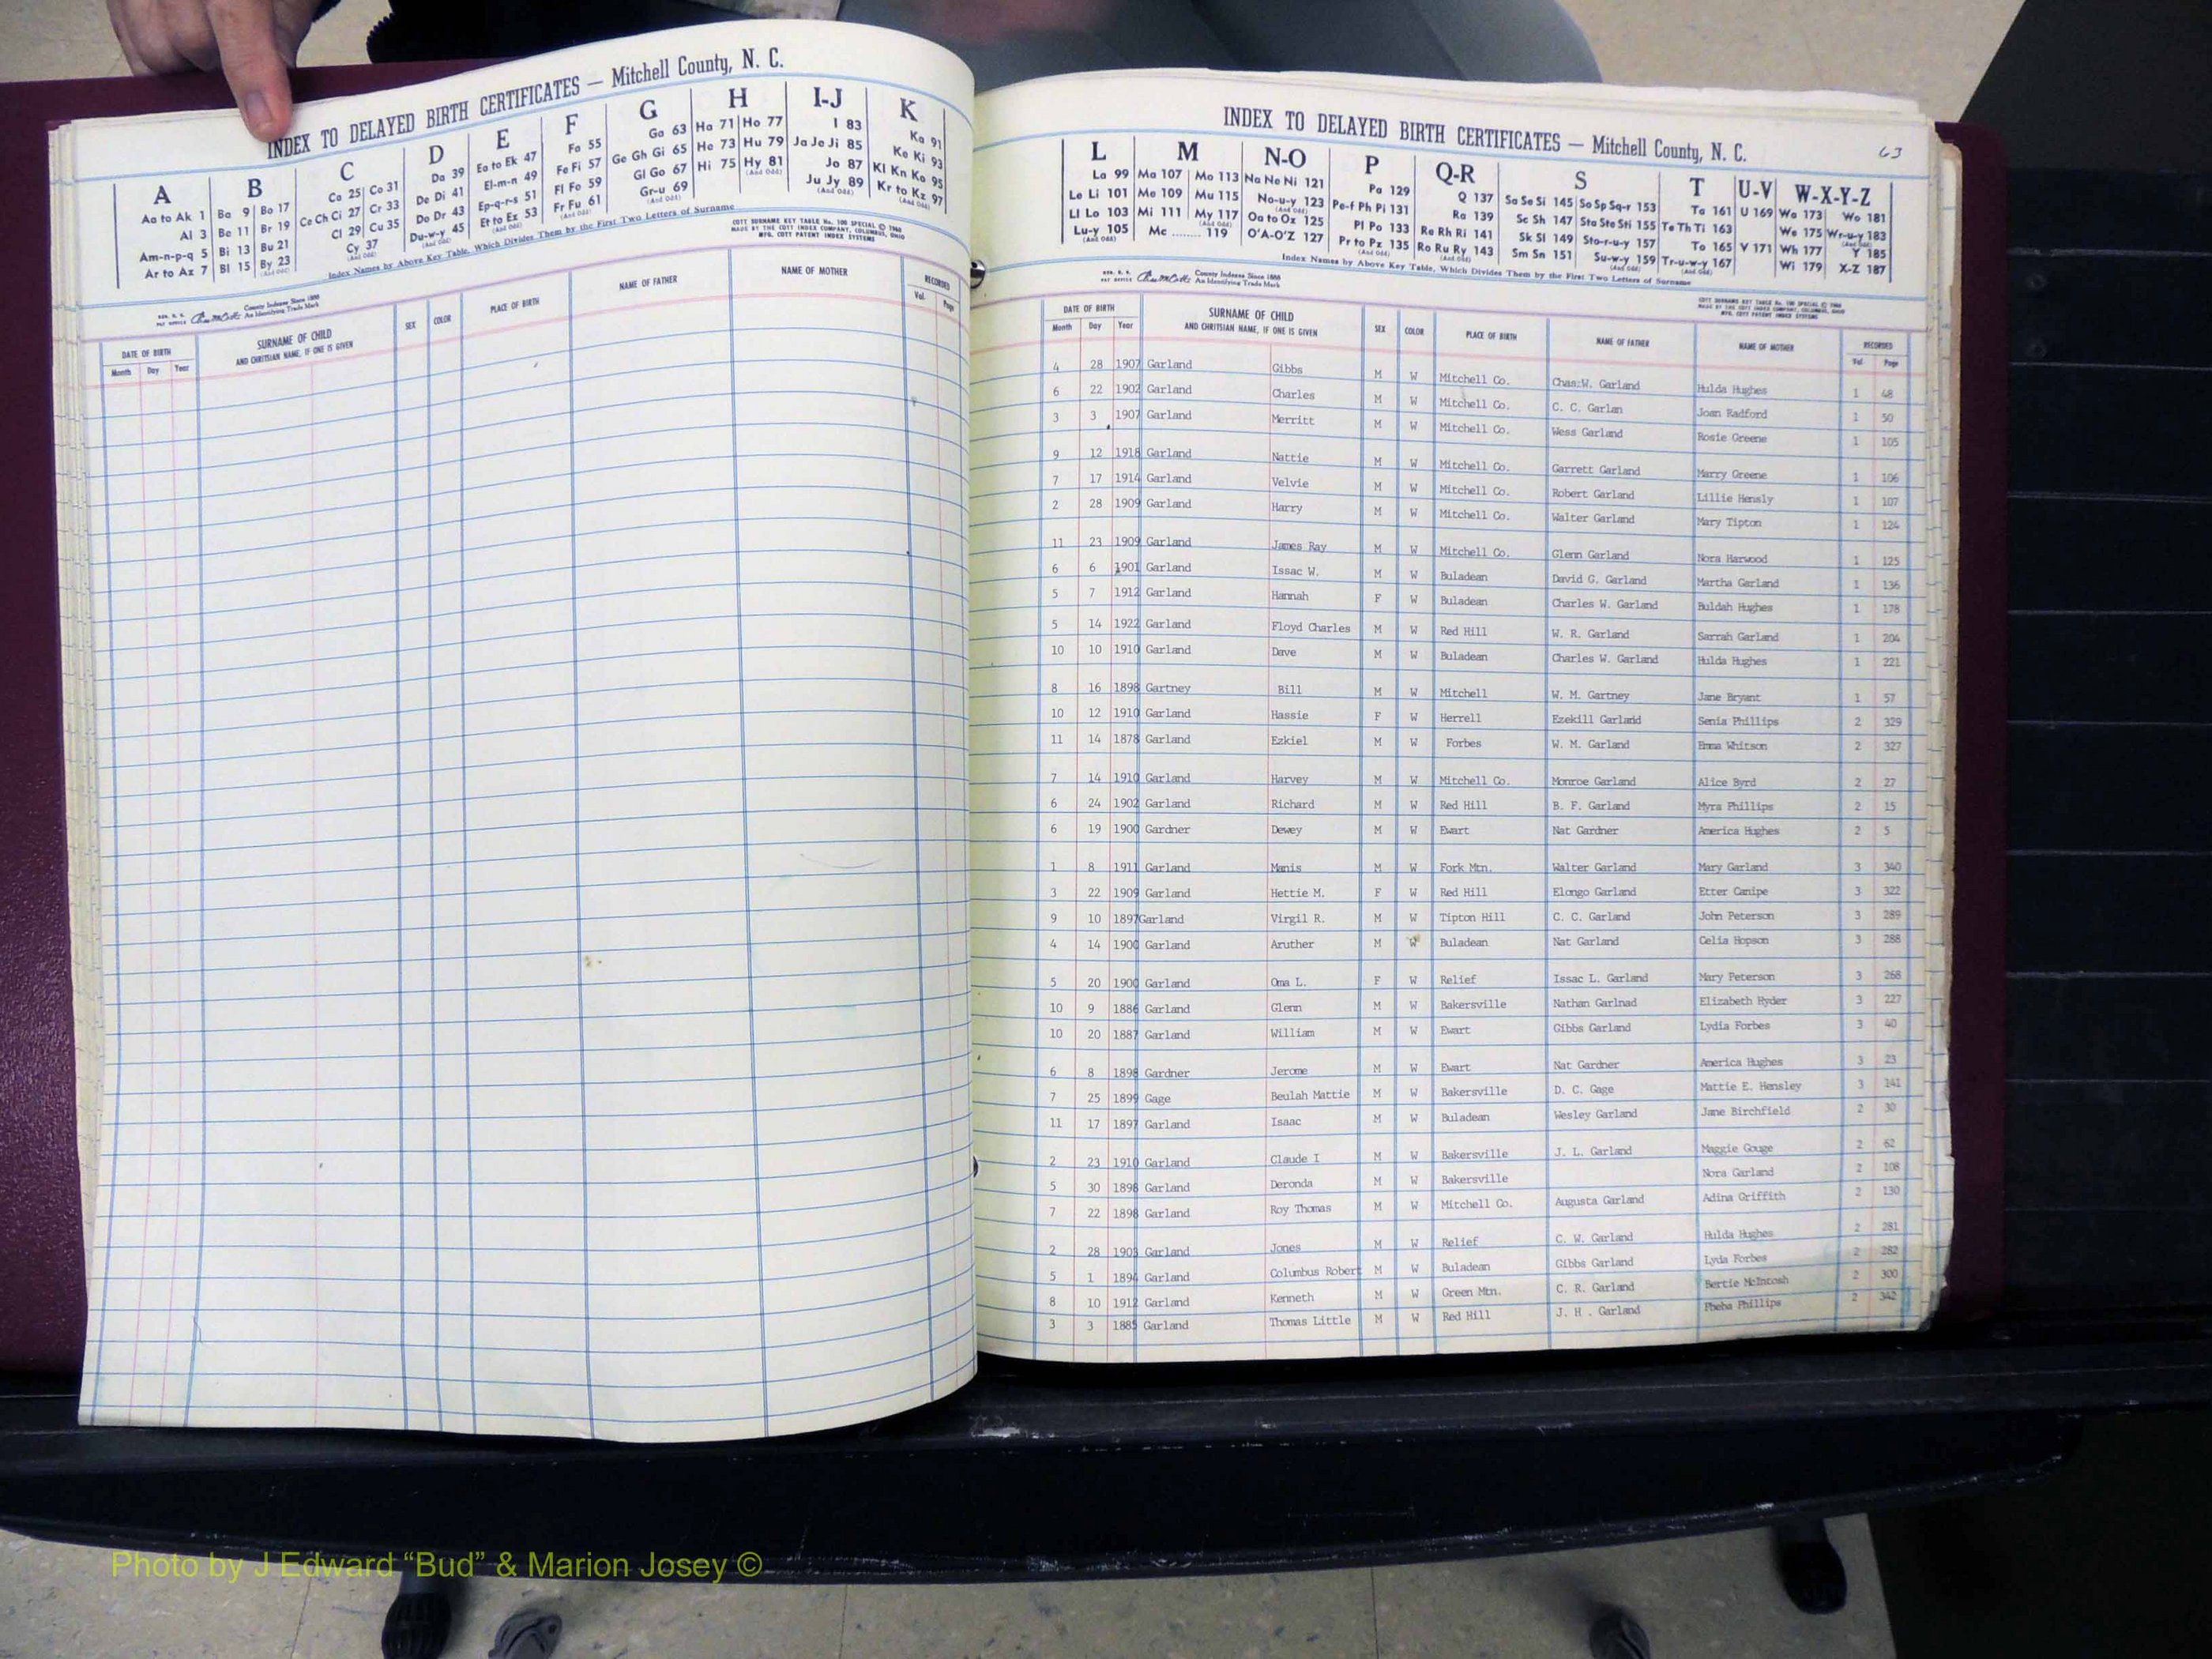 INDEX TO DELAYED BIRTH CERTIFICATES — Mitchell County, N. C.
A B C D E F G H I-J K
Aa to Ak 1
Al 3
Am-n-p-q 5
Ar to Az 7
Ba 9 Bo 17
Be 11 Br 19
Bi 13 Bu 21
Bl 15 By 23
(And Odd)
Ca 25 Co 31
Ce Ch Ci 27 Cr 33
Cl 29 Cu 35
Cy 37
(And Odd)
Da 39
De Di 41
Do Dr 43
Du-w-y 45
(And Odd)
Ea to Ek 47
El-m-n 49
Ep-q-r-s 51
Et to Ez 53
Fa 55
Fe Fi 57
Fl Fo 59
Fr Fu 61
(And Odd)
Ga 63
Ge Gh Gi 65
Gl Go 67
Gr-u 69
(And Odd)
Ha 71 Ho 77
He 73 Hu 79
Hi 75 Hy 81
(And Odd)
I 83
Ja Je Ji 85
Jo 87
Ju Jy 89
(And Odd)
Ka 91
Ke Ki 93
Kl Kn Ko 95
Kr to Kz 97
(And Odd)
Index Names by Above Key Table, Which Divides Them by the First Two Letters of Surname
COTT SURNAME KEY TABLE No. 106 SPECIAL © 1960
MADE BY THE COTT INDEX COMPANY, COLUMBUS, OHIO
MFG. COTT PATENT INDEX SYSTEMS
County Indexes Since 1888
An Identifying Trade Mark
DATE OF BIRTH
Month Day Year
SURNAME OF CHILD
AND CHRITSIAN NAME, IF ONE IS GIVEN
SEX COLOR PLACE OF BIRTH NAME OF FATHER NAME OF MOTHER
RECORDED
Vol. Page
INDEX TO DELAYED BIRTH CERTIFICATES — Mitchell County, N. C.
63
L M N-O P Q-R S T U-V W-X-Y-Z
La 99
Le Li 101
Ll Lo 103
Lu-y 105
(And Odd)
Ma 107 Mo 113
Me 109 Mu 115
Mi 111 My 117
(And Odd)
Mc ........ 119
Na Ne Ni 121
No-u-y 123
(And Odd)
Oa to Oz 125
O'A-O'Z 127
Pa 129
Pe-f Ph Pi 131
Pl Po 133
Pr to Pz 135
Q 137
Ra 139
Re Rh Ri 141
Ro Ru Ry 143
(And Odd)
Sa Se Si 145 So Sp Sq-r 153
Sc Sh 147 Sta Ste Sti 155
Sk Sl 149 Sto-r-u-y 157
Sm Sn 151 Su-w-y 159
(And Odd)
Ta 161
Te Th Ti 163
To 165
Tr-u-w-y 167
(And Odd)
U 169
V 171
Wa 173 Wo 181
We 175 Wr-u-y 183
(And Odd)
Wh 177 Y 185
Wi 179 X-Z 187
Index Names by Above Key Table, Which Divides Them by the First Two Letters of Surname
County Indexes Since 1888
An Identifying Trade Mark
COTT SURNAME KEY TABLE No. 106 SPECIAL © 1960
MADE BY THE COTT INDEX COMPANY, COLUMBUS, OHIO
MFG. COTT PATENT INDEX SYSTEMS
DATE OF BIRTH
Month Day Year
SURNAME OF CHILD
AND CHRITSIAN NAME, IF ONE IS GIVEN
SEX COLOR PLACE OF BIRTH NAME OF FATHER NAME OF MOTHER
RECORDED
Vol. Page
4 28 1907 Garland Gibbs M W Mitchell Co. Chas.W. Garland Hulda Hughes 1 48
6 22 1902 Garland Charles M W Mitchell Co. C. C. Garlan Joan Radford 1 50
3 3 1907 Garland Merritt M W Mitchell Co. Wess Garland Rosie Greene 1 105
9 12 1918 Garland Nattie M W Mitchell Co. Garrett Garland Marry Greene 1 106
7 17 1914 Garland Velvie M W Mitchell Co. Robert Garland Lillie Hensly 1 107
2 28 1909 Garland Harry M W Mitchell Co. Walter Garland Mary Tipton 1 124
11 23 1909 Garland James Ray M W Mitchell Co. Glenn Garland Nora Harwood 1 125
6 6 1901 Garland Issac W. M W Buladean David G. Garland Martha Garland 1 136
5 7 1912 Garland Hannah F W Buladean Charles W. Garland Buldah Hughes 1 178
5 14 1922 Garland Floyd Charles M W Red Hill W. R. Garland Sarrah Garland 1 204
10 10 1910 Garland Dave M W Buladean Charles W. Garland Hulda Hughes 1 221
8 16 1898 Gartney Bill M W Mitchell W. M. Gartney Jane Bryant 1 57
10 12 1910 Garland Hassie F W Herrell Ezekill Garland Senia Phillips 2 329
11 14 1878 Garland Ezkiel M W Forbes W. M. Garland Emma Whitson 2 327
7 14 1910 Garland Harvey M W Mitchell Co. Monroe Garland Alice Byrd 2 27
6 24 1902 Garland Richard M W Red Hill B. F. Garland Myra Phillips 2 15
6 19 1900 Gardner Dewey M W Ewart Nat Gardner America Hughes 2 5
1 8 1911 Garland Manis M W Fork Mtn. Walter Garland Mary Garland 3 340
3 22 1909 Garland Hettie M. F W Red Hill Elongo Garland Etter Canipe 3 322
9 10 1897 Garland Virgil R. M W Tipton Hill C. C. Garland John Peterson 3 289
4 14 1900 Garland Aruther M W Buladean Nat Garland Celia Hopson 3 288
5 20 1900 Garland Oma L. F W Relief Issac L. Garland Mary Peterson 3 268
10 9 1886 Garland Glenn M W Bakersville Nathan Garlnad Elizabeth Hyder 3 227
10 20 1887 Garland William M W Ewart Gibbs Garland Lydia Forbes 3 40
6 8 1898 Gardner Jerome M W Ewart Nat Gardner America Hughes 3 23
7 25 1899 Gage Beulah Mattie M W Bakersville D. C. Gage Mattie E. Hensley 3 141
11 17 1897 Garland Isaac M W Buladean Wesley Garland Jane Birchfield 2 30
2 23 1910 Garland Claude I M W Bakersville J. L. Garland Maggie Gouge 2 62
5 30 1898 Garland Deronda M W Bakersville Nora Garland 2 108
7 22 1898 Garland Roy Thomas M W Mitchell Co. Augusta Garland Adina Griffith 2 130
2 28 1903 Garland Jones M W Relief C. W. Garland Hulda Hughes 2 281
5 1 1894 Garland Columbus Robert M W Buladean Gibbs Garland Lyda Forbes 2 282
8 10 1912 Garland Kenneth M W Green Mtn. C. R. Garland Bertie McIntosh 2 300
3 3 1885 Garland Thomas Little M W Red Hill J. H . Garland Pheba Phillips 2 342
Photo by J Edward “Bud” & Marion Josey ©